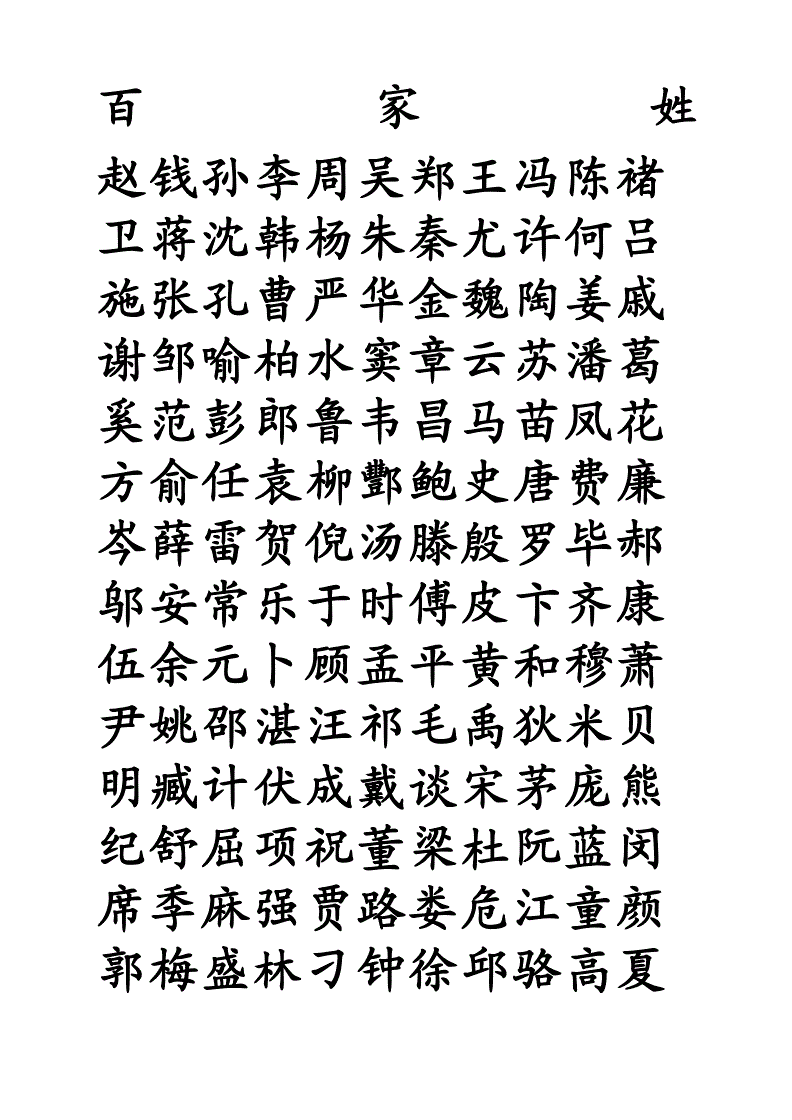 百家姓
赵钱孙李周吴郑王冯陈褚
卫蒋沈韩杨朱秦尤许何吕
施张孔曹严华金魏陶姜戚
谢邹喻柏水窦章云苏潘葛
奚范彭郎鲁韦昌马苗凤花
方俞任袁柳酆鲍史唐费廉
岑薛雷贺倪汤滕殷罗毕郝
邬安常乐于时傅皮卞齐康
伍余元卜顾孟平黄和穆萧
尹姚邵湛汪祁毛禹狄米贝
明臧计伏成戴谈宋茅庞熊
纪舒屈项祝董梁杜阮蓝闵
席季麻强贾路娄危江童颜
郭梅盛林刁钟徐邱骆高夏